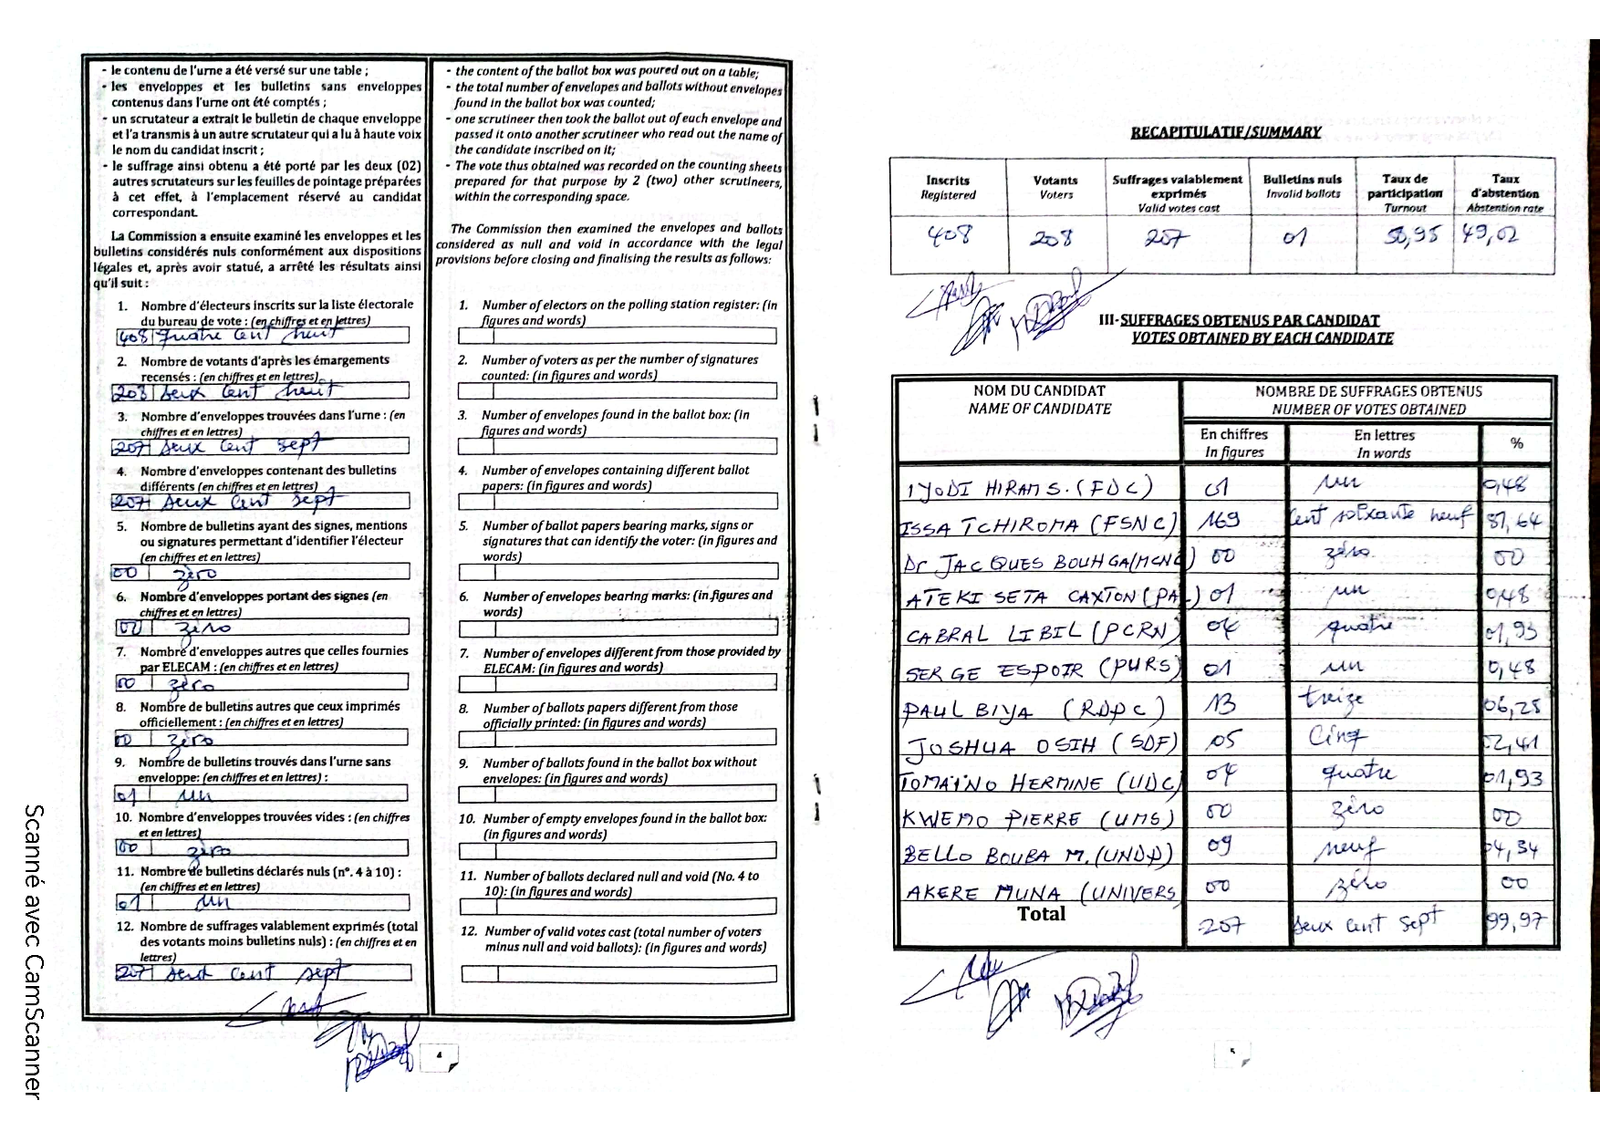 - le contenu de l'urne a été versé sur une table ;
- les enveloppes et les bulletins sans enveloppes
contenus dans l'urne ont été comptés ;
- un scrutateur a extrait le bulletin de chaque enveloppe
et l'a transmis à un autre scrutateur qui a lu à haute voix
le nom du candidat inscrit ;
- le suffrage ainsi obtenu a été porté par les deux (02)
autres scrutateurs sur les feuilles de pointage préparées
à cet effet, à l'emplacement réservé au candidat
correspondant.
La Commission a ensuite examiné les enveloppes et les
bulletins considérés nuls conformément aux dispositions
légales et, après avoir statué, a arrêté les résultats ainsi
qu'il suit :
1. Nombre d'électeurs inscrits sur la liste électorale
du bureau de vote : (en chiffres et en lettres)
408 quatre cent huit
2. Nombre de votants d'après les émargements
recensés : (en chiffres et en lettres)
208 deux cent huit
3. Nombre d'enveloppes trouvées dans l'urne : (en
chiffres et en lettres)
207 deux cent sept
4. Nombre d'enveloppes contenant des bulletins
différents (en chiffres et en lettres)
207 deux cent sept
5. Nombre de bulletins ayant des signes, mentions
ou signatures permettant d'identifier l'électeur
(en chiffres et en lettres)
00 zéro
6. Nombre d'enveloppes portant des signes (en
chiffres et en lettres)
00 zéro
7. Nombre d'enveloppes autres que celles fournies
par ELECAM : (en chiffres et en lettres)
00 zéro
8. Nombre de bulletins autres que ceux imprimés
officiellement : (en chiffres et en lettres)
00 zéro
9. Nombre de bulletins trouvés dans l'urne sans
enveloppe: (en chiffres et en lettres) :
01 un
10. Nombre d'enveloppes trouvées vides : (en chiffres
et en lettres)
00 zéro
11. Nombre de bulletins déclarés nuls (n°. 4 à 10) :
(en chiffres et en lettres)
01 un
12. Nombre de suffrages valablement exprimés (total
des votants moins bulletins nuls) : (en chiffres et en
lettres)
207 deux cent sept
- the content of the ballot box was poured out on a table;
- the total number of envelopes and ballots without envelopes
found in the ballot box was counted;
- one scrutineer then took the ballot out of each envelope and
passed it onto another scrutineer who read out the name of
the candidate inscribed on it;
- The vote thus obtained was recorded on the counting sheets
prepared for that purpose by 2 (two) other scrutineers,
within the corresponding space.
The Commission then examined the envelopes and ballots
considered as null and void in accordance with the legal
provisions before closing and finalising the results as follows:
1. Number of electors on the polling station register: (in
figures and words)
2. Number of voters as per the number of signatures
counted: (in figures and words)
3. Number of envelopes found in the ballot box: (in
figures and words)
4. Number of envelopes containing different ballot
papers: (in figures and words)
5. Number of ballot papers bearing marks, signs or
signatures that can identify the voter: (in figures and
words)
6. Number of envelopes bearing marks: (in figures and
words)
7. Number of envelopes different from those provided by
ELECAM: (in figures and words)
8. Number of ballots papers different from those
officially printed: (in figures and words)
9. Number of ballots found in the ballot box without
envelopes: (in figures and words)
10. Number of empty envelopes found in the ballot box:
(in figures and words)
11. Number of ballots declared null and void (No. 4 to
10): (in figures and words)
12. Number of valid votes cast (total number of voters
minus null and void ballots): (in figures and words)
4
RECAPITULATIF/SUMMARY
Inscrits Votants Suffrages valablement exprimés Bulletins nuls Taux de participation Taux d'abstention
Registered Voters Valid votes cast Invalid ballots Turnout Abstention rate
408 208 207 01 50,98 49,02
III-SUFFRAGES OBTENUS PAR CANDIDAT
VOTES OBTAINED BY EACH CANDIDATE
NOM DU CANDIDAT NOMBRE DE SUFFRAGES OBTENUS
NAME OF CANDIDATE NUMBER OF VOTES OBTAINED
En chiffres En lettres %
In figures In words
IYODI HIRAM S. (FDC) 01 un 0,48
ISSA TCHIROMA (FSNC) 169 Cent soixante neuf 81,64
Dr JACQUES BOUHGA(MCNC) 00 zéro 00
ATEKI SETA CAXTON (PAL) 01 un 0,48
CABRAL LIBIL (PCRN) 04 quatre 01,93
SERGE ESPOIR (PURS) 01 un 0,48
PAUL BIYA (RDPC) 13 treize 06,28
JOSHUA OSIH (SDF) 05 Cinq 02,41
TOMAÏNO HERMINE (UDC) 04 quatre 01,93
KWEMO PIERRE (UMS) 00 zéro 00
BELLO BOUBA M. (UNDP) 09 neuf 04,34
AKERE MUNA (UNIVERS 00 zéro 00
Total 207 deux cent sept 99,97
5
Scanné avec CamScanner